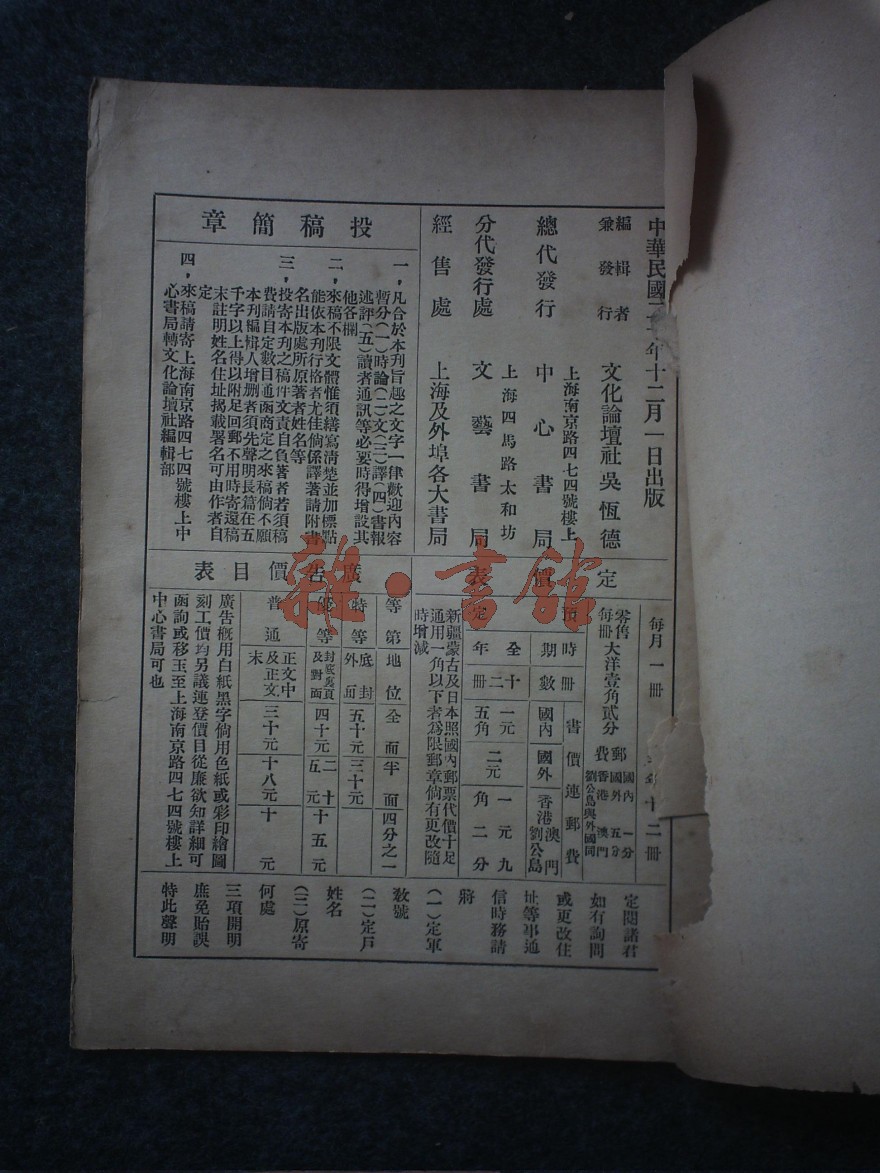 中華民國二十一年十二月一日出版
編輯者
兼發行
文化論壇社吳恆德
上海南京路四七四號樓上
總代發行
中心書局
上海四馬路太和坊
分代發行處
文藝書局
經售處
上海及外埠各大書局
投稿簡章
一，凡合於本刊旨趣之文字一律歡迎內容
暫分(一)時論(二)文(三)譯(四)書報
述評(五)讀者通訊等必要時得增設其
他各欄
二，來稿不限文體惟須繕寫清楚並加標點
能依本刊行格者尤佳倘係譯著請附書
名出版處所原著者姓名等
三，投寄本刊之稿件文責自負著者若須稿
費請自定數目通函商定之來稿倘不願
本刊編輯人增删者須先聲明長篇在五
千字以上得以附足回郵不用時寄還稿
末註明姓名住址揭載署名可由作者自
定
四，來稿請寄上海南京路四七四號樓上中
心書局轉文化論壇社編輯部
定價表
每月一冊
年十二冊
零售
每冊
大洋壹角貳分
郵費
國內一分
國外五分
香港澳門
劉公島與外國同
預定
時期
冊數
書價連郵費
國內
國外
香港澳門
劉公島
全年
十二冊
一元五角
二元
一元九角二分
新疆蒙古及日本照國內郵票代價十足
通用一角以下者為限郵章倘有更改隨
時增減
廣告價目表
等第
地位
全面
半面
四分之一
特等
底封外面
五十元
三十元
優等
封底裏頁
及對面
四十元
二十五元
十五元
普通
正文中
及正文
末
三十元
十八元
十元
廣告概用白紙黑字倘用色紙或彩印繪圖
刻工價均另議連登價目從廉欲知詳細可
函詢或移玉至上海南京路四七四號樓上
中心書局可也
定閱諸君
如有詢問
或更改住
址等事通
信時務請
將
(一)定單
數號
(二)定戶
姓名
(三)原寄
何處
三項開明
庶免貽誤
特此聲明
雜·書館